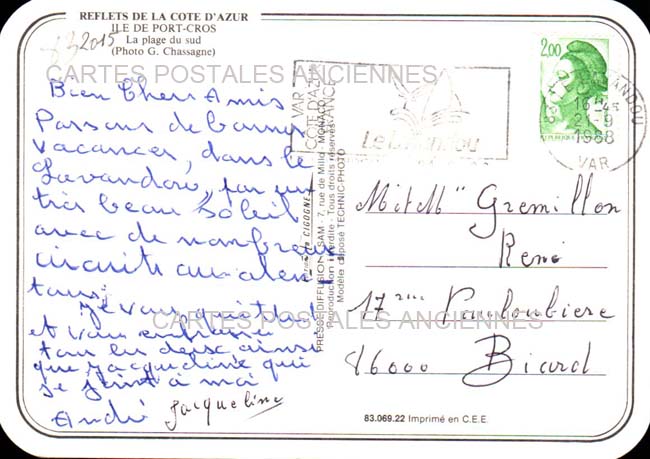 REFLETS DE LA COTE D'AZUR
ILE DE PORT-CROS
La plage du sud
(Photo G. Chassagne)
83 2015
CARTES POSTALES ANCIENNES
Bien Chers Amis
Passons de bonnes
vacances, dans le
Lavandou, par un
très beau soleil
avec de nombreux
circuits aux alen
tours.
Je vous quitte
et vous embrasse
tous les deux ainsi
que Jacqueline qui
se joint à moi
André Jacqueline
VAR
COTE D'AZUR
FRANCE
Le Lavandou
2,00
LAVANDOU
16H45
21-9
1988
VAR
PRESSE DIFFUSION SAM - 7, rue de Millo - MONACO
Reproduction interdite - Tous droits réservés
Modèle déposé TECHNIC-PHOTO
M et Mme Gremillon
René
17 rue Vauloubiere
86000 Biard
CARTES POSTALES ANCIENNES
83.069.22 Imprimé en C.E.E.